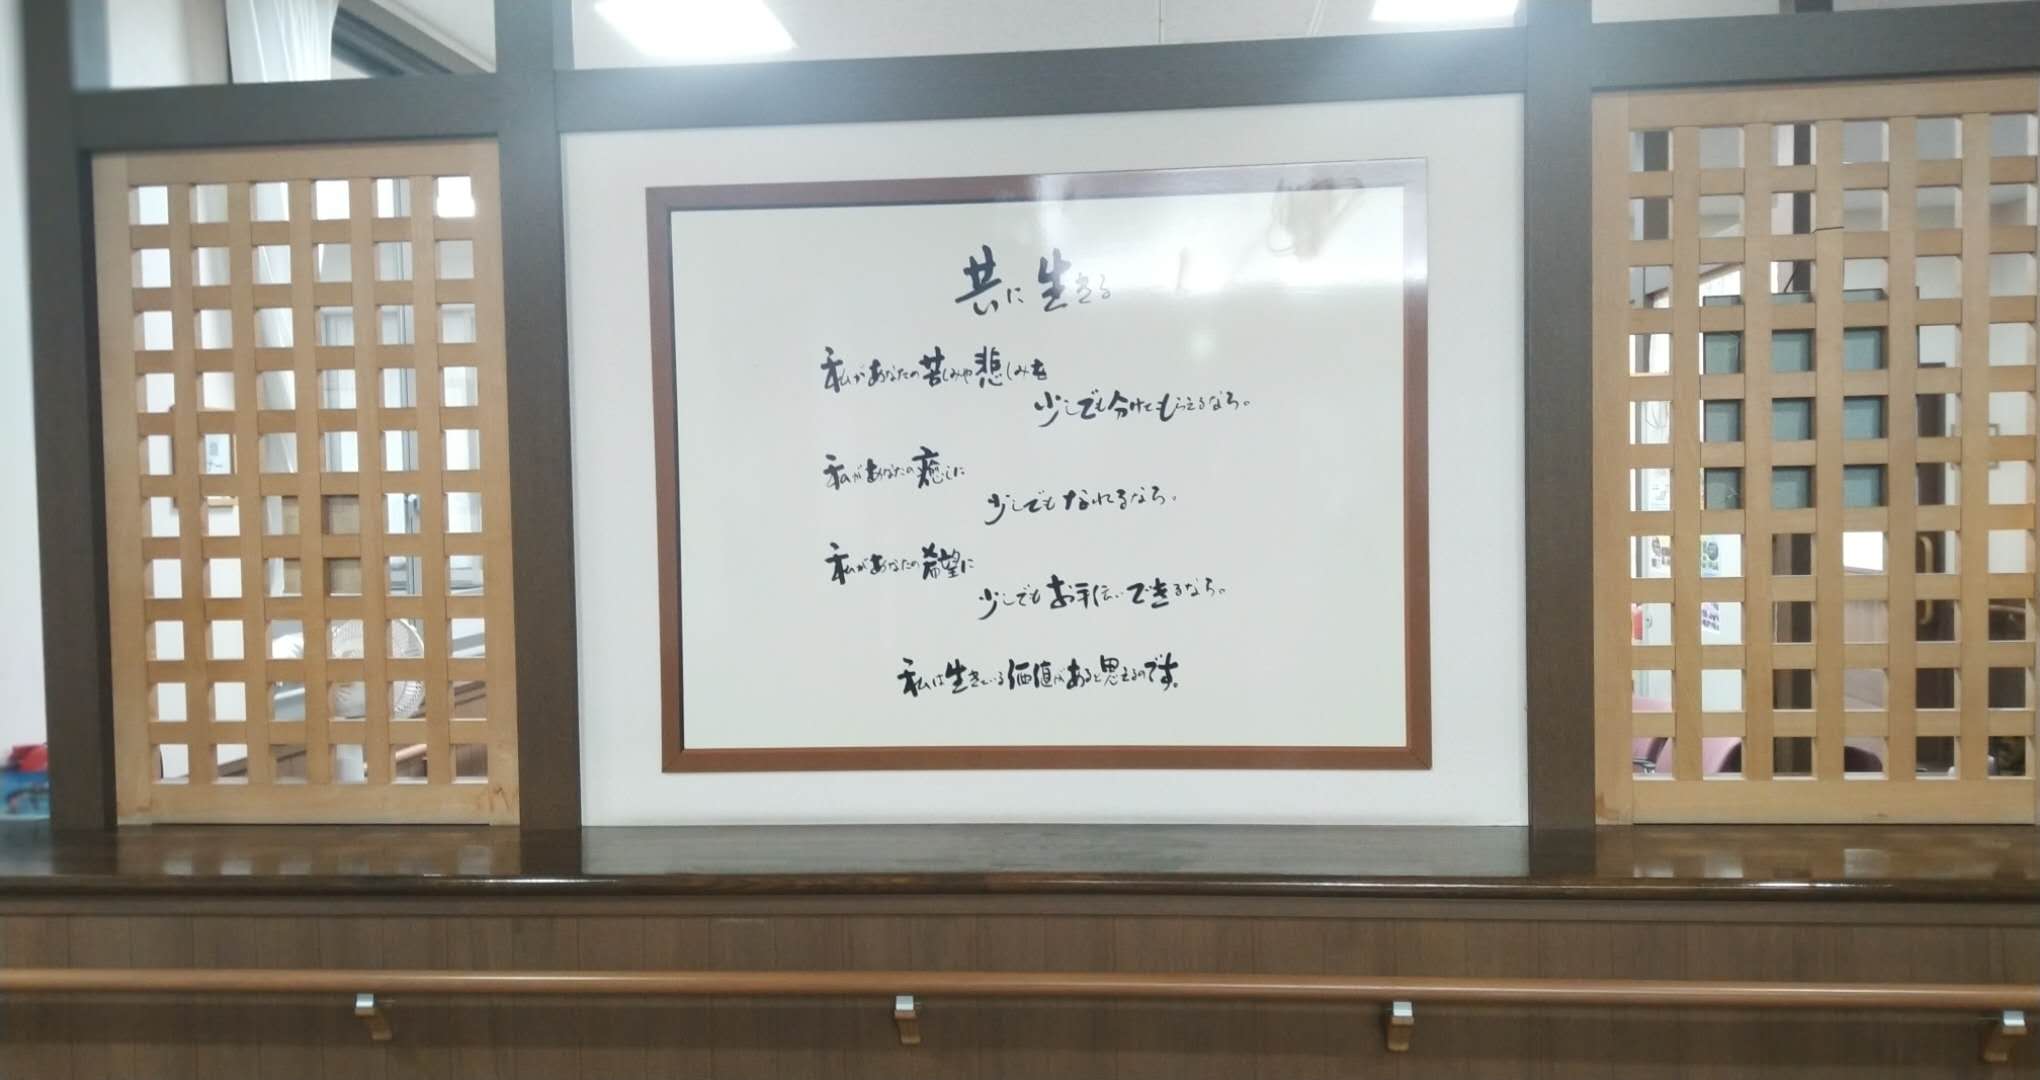 共に生きる
私があなたの苦しみや悲しみを
少しでも分けてもらえるなら。
私があなたの癒しに
少しでもなれるなら。
私があなたの希望に
少しでもお手伝いできるなら。
私は生きている価値があると思えるのです。